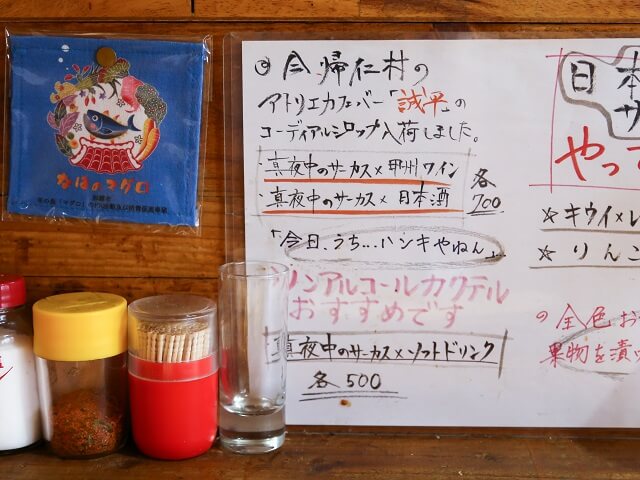 なはのマグロ
今帰仁村の
アトリエカフェバー「誠平」の
コーディアルシロップ入荷しました。
・真夜中のサーカス×甲州ワイン
・真夜中のサーカス×日本酒
各
700
「今日、うち…ハンキやねん」
ノンアルコールカクテル
おすすめです
真夜中のサーカス×ソフトドリンク
各500
日本
サ
やっ
☆キウイ×レ
☆りんご
の全色お
果物を漬